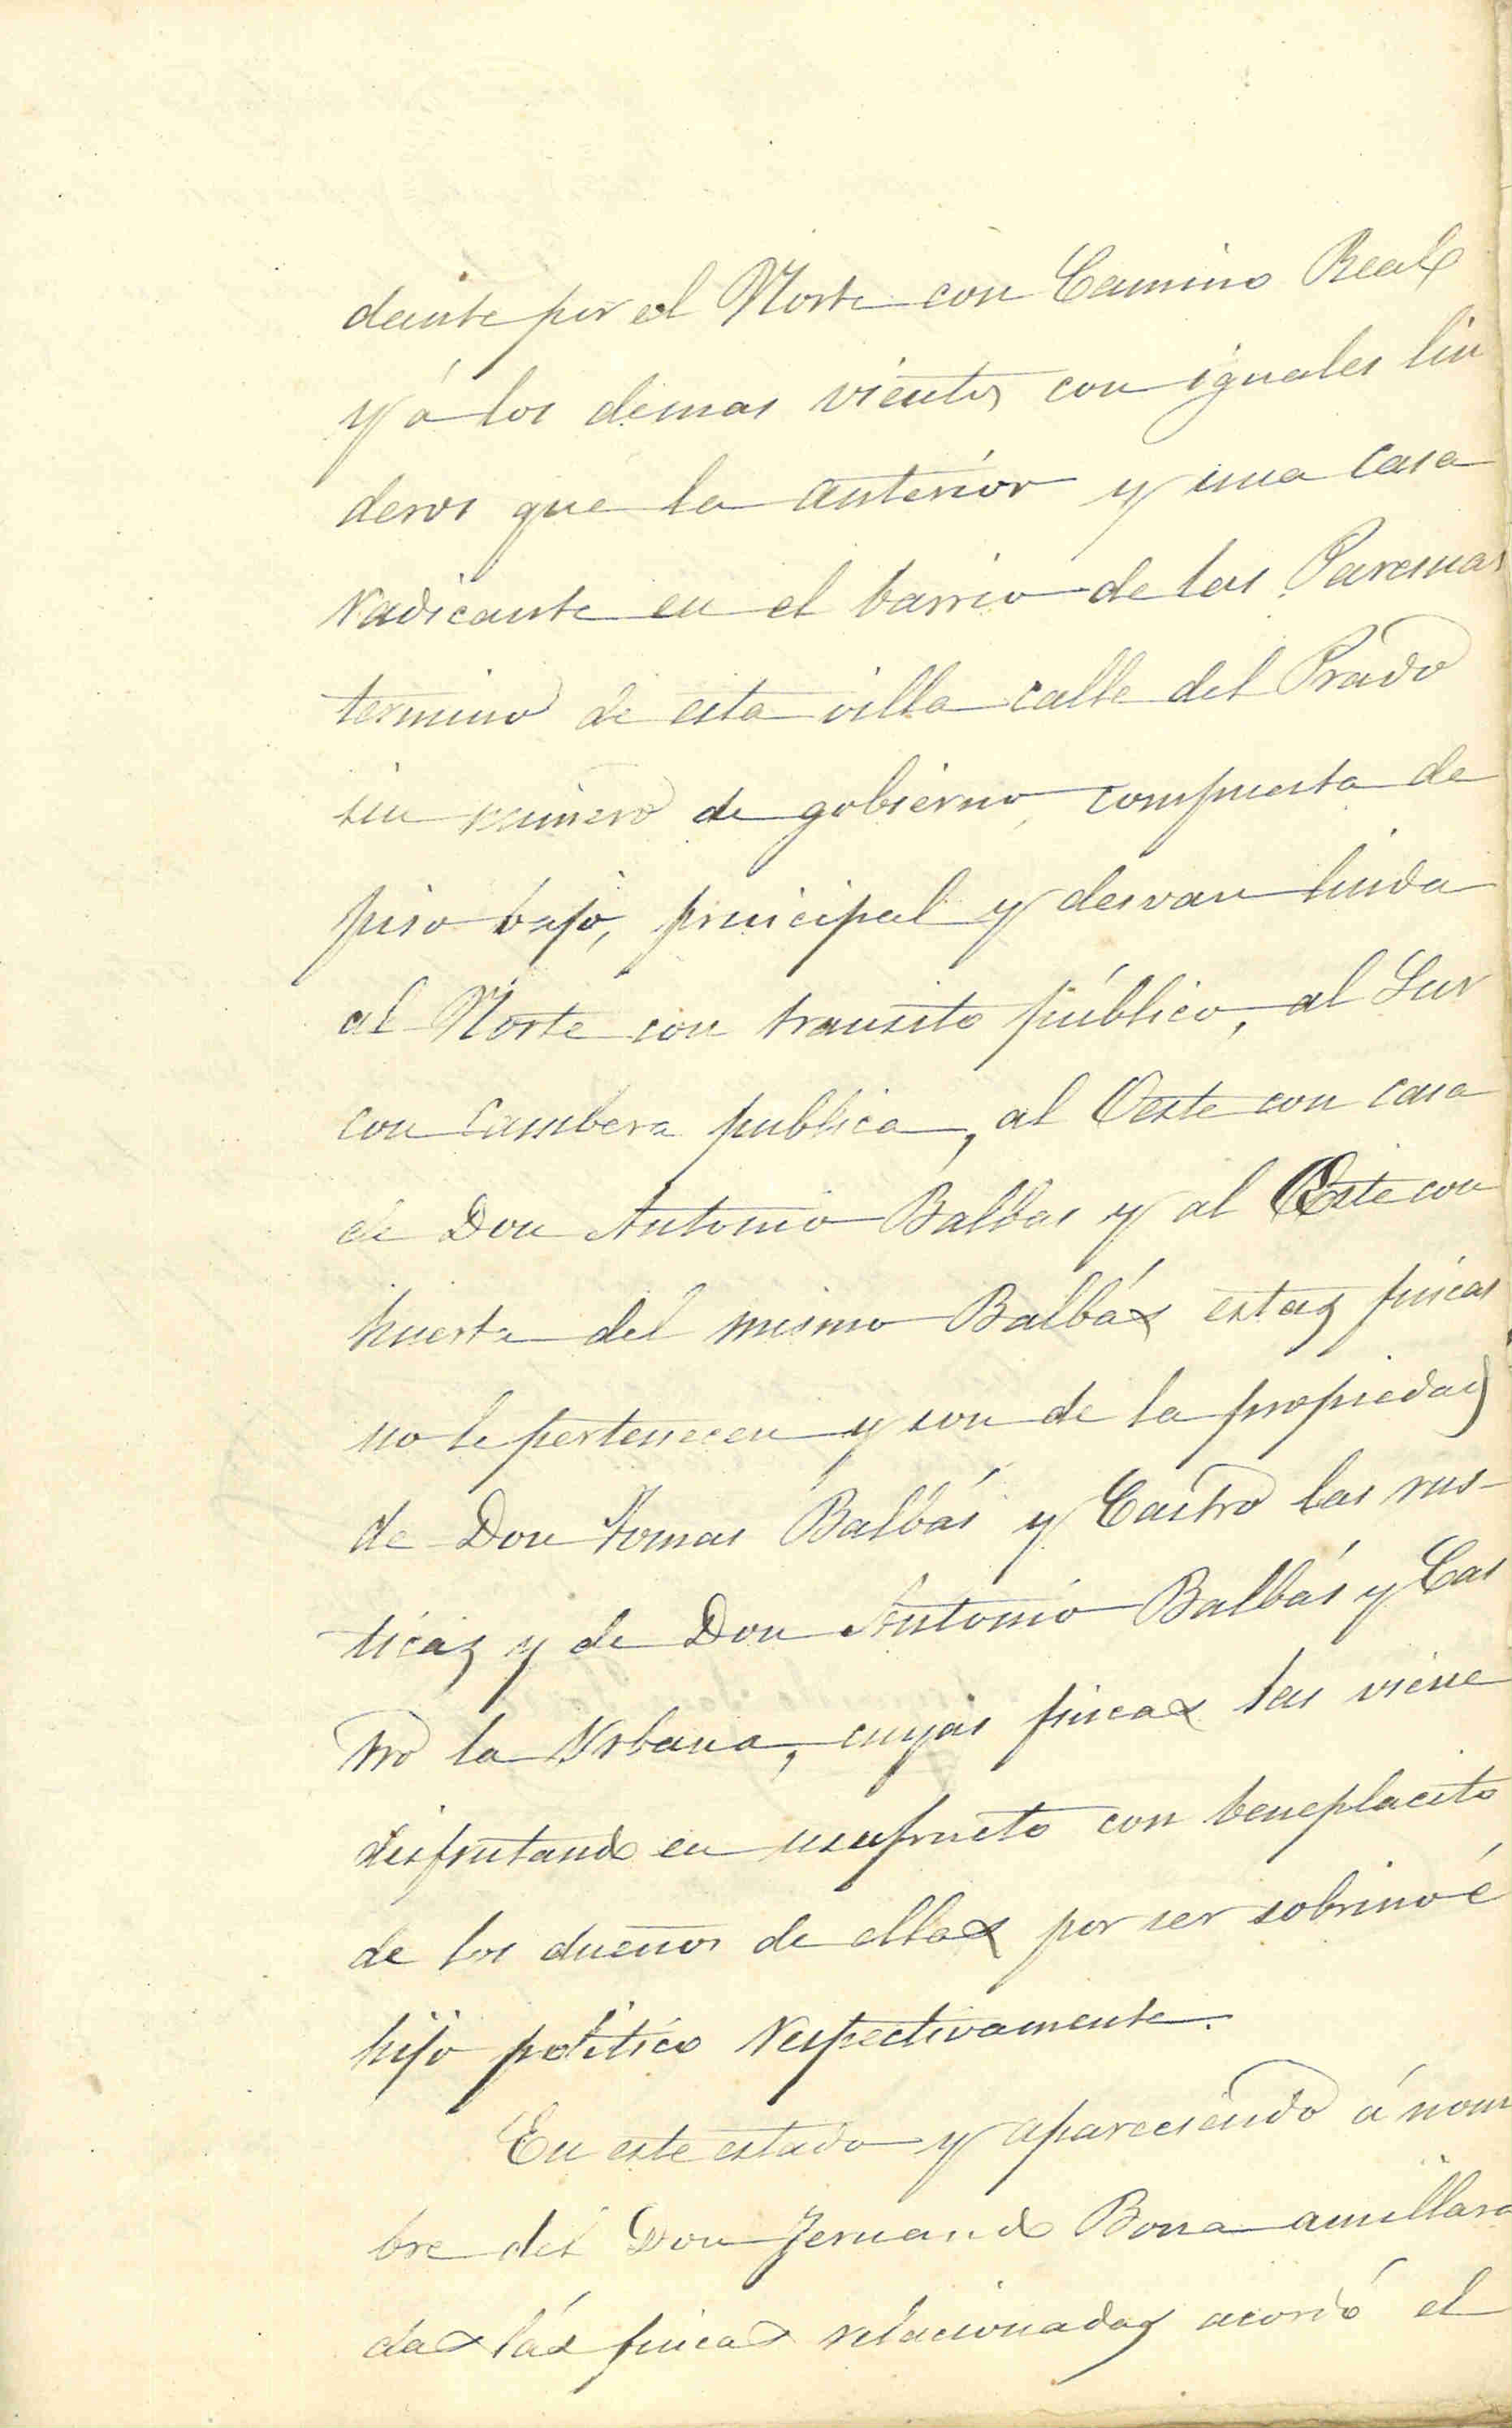 dante por el Norte con Camino Real
y á los demas vientos con iguales lin
deros que la anterior y una casa
radicante en el barrio de las Paresnas
termino de esta villa calle del Prado
sin numero de gobierno, compuesta de
piso bajo, principal y desvan linda
al Norte con transito público, al Sur
con cambera publica, al Oeste con casa
de Don Antonio Balbas y al Este con
huerta del mismo Balbás estas fincas
no le pertenecen y son de la propiedad
de Don Tomas Balbás y Castro las rus-
ticas y de Don Antonio Balbás y Cas
tro la Urbana, cuyas fincas las viene
disfrutando en usufructo con beneplacito
de los dueños de ellas por ser sobrino é
hijo politico respectivamente.
En este estado y apareciendo á nom
bre del Don Fernando Bona amillara
das las fincas relacionadas acordó el